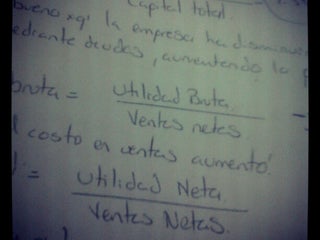 Capital total.
bueno xq' la empresa ha
mediante deudas, aumentando la
bruta = Utilidad Bruta.
Ventas netas.
costo en ventas aumentó.
= Utilidad Neta
Ventas Netas.